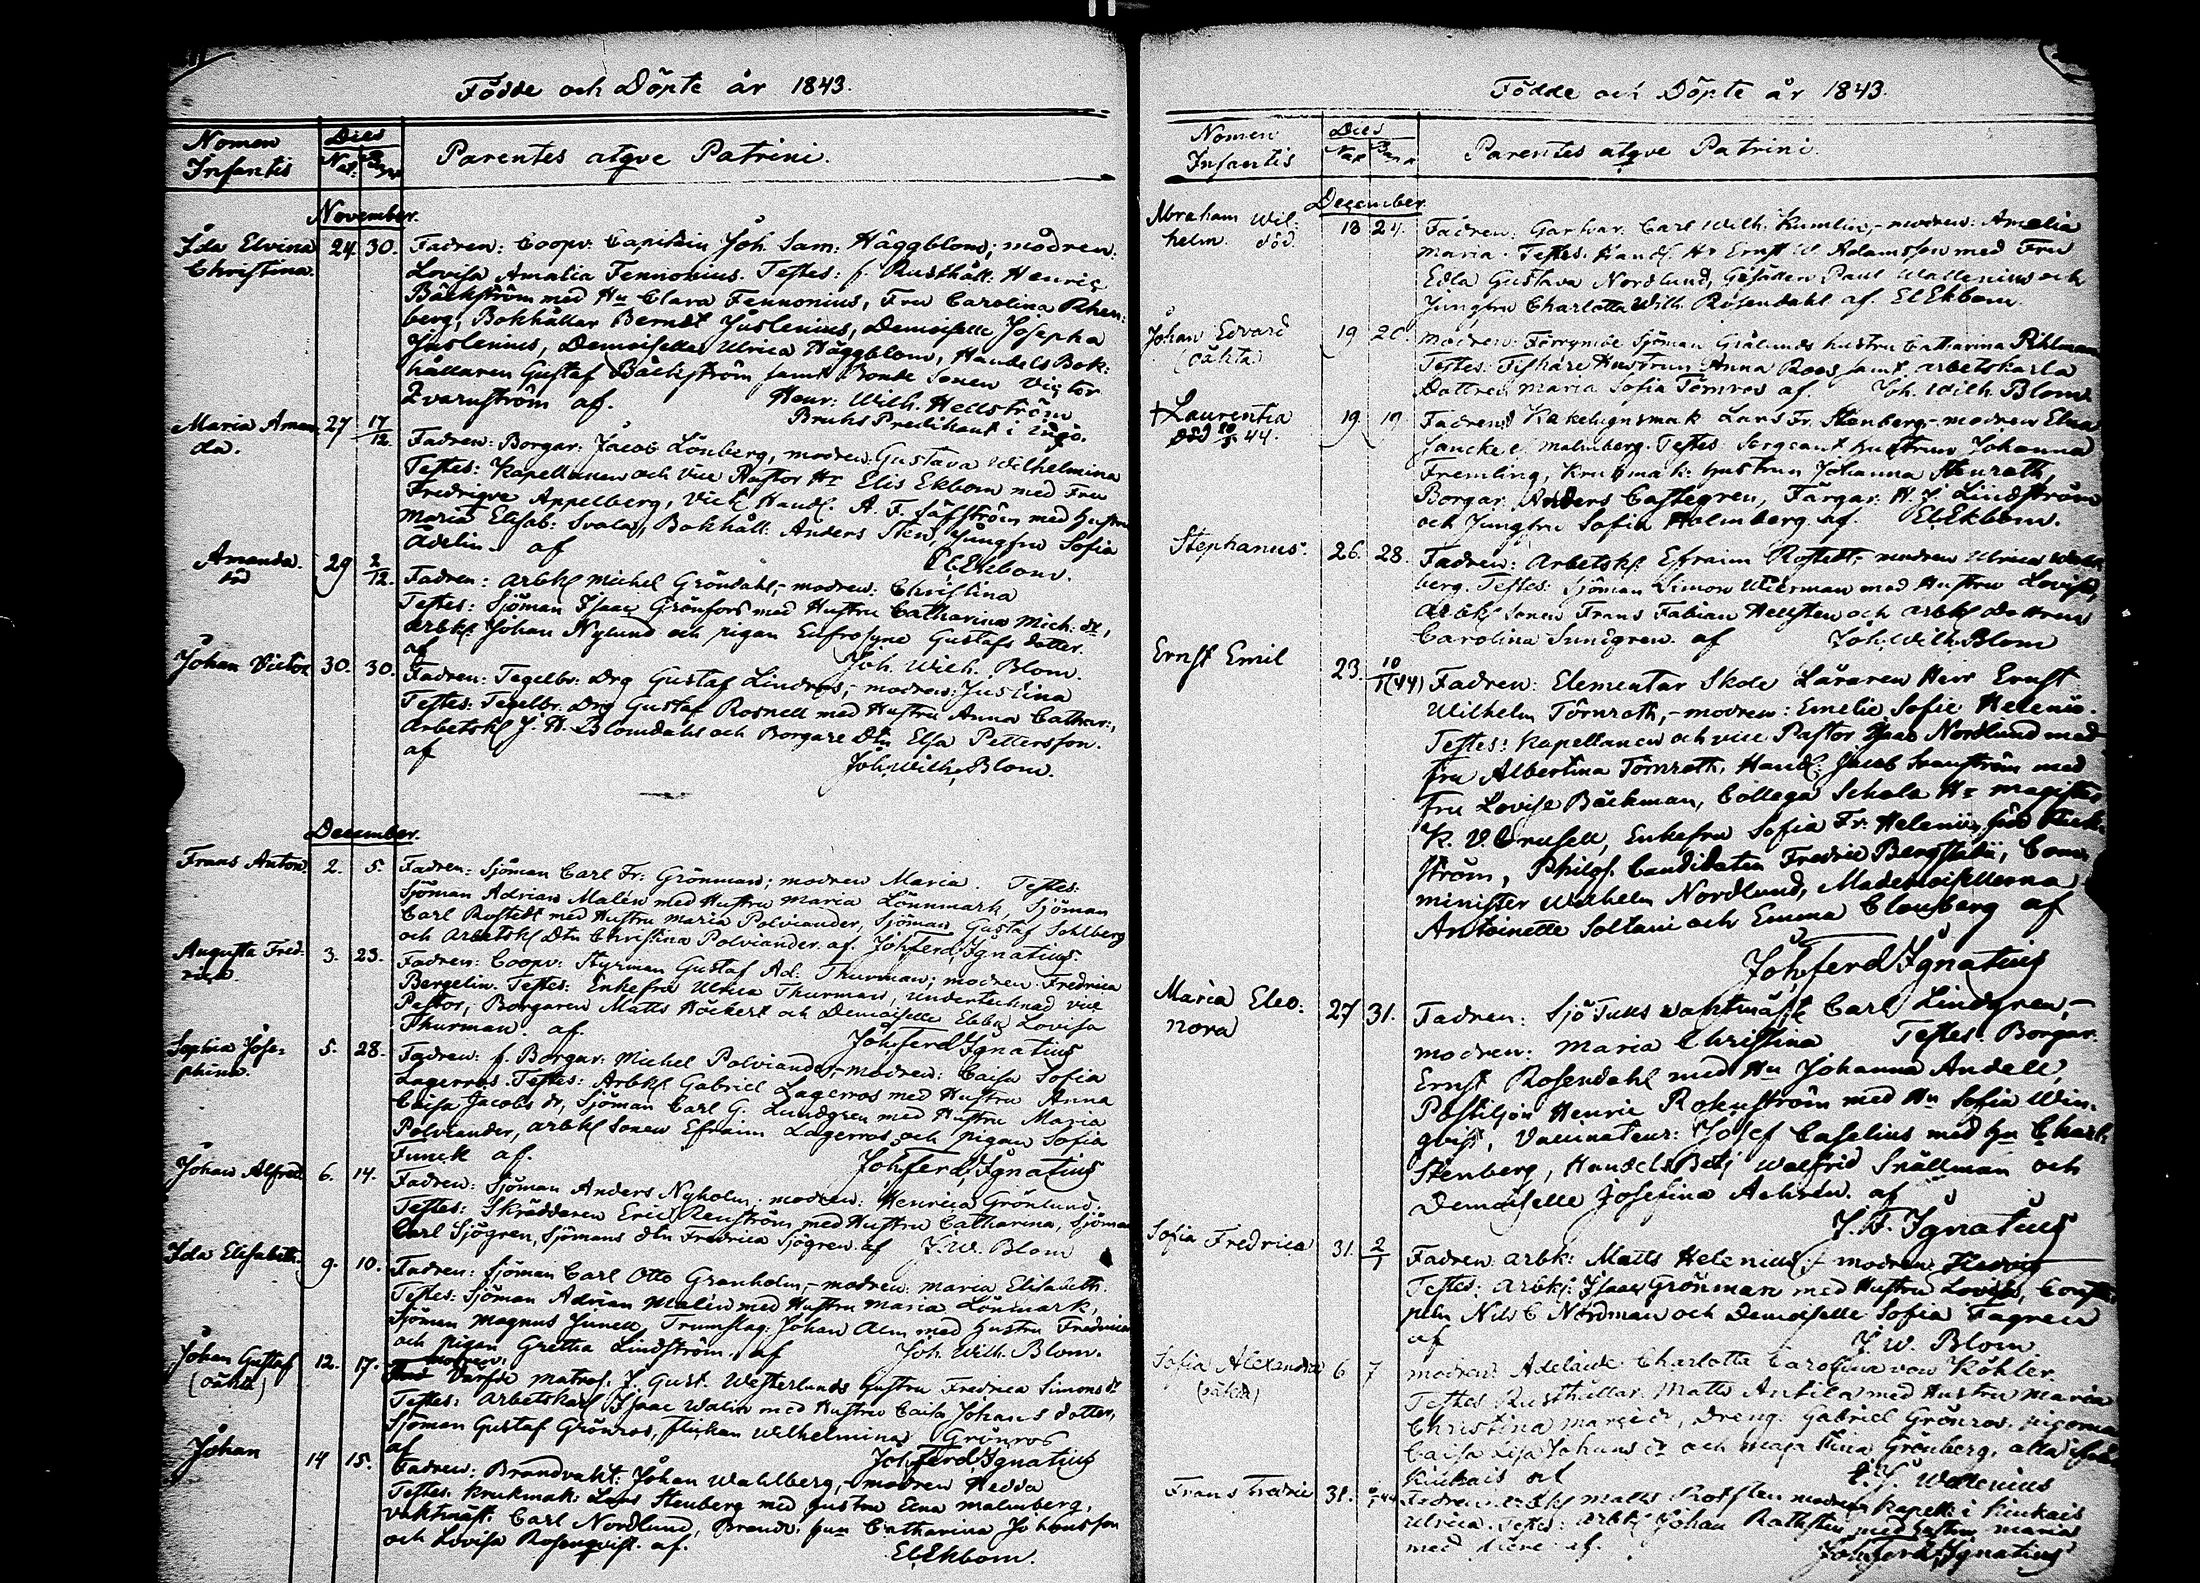 Födde och Döpte år 1843.
Nomen Infantis
Dies
Nat. Bapt.
Parentes atqve Patrini.
November.
Ida Elvina Christina. 24. 30.
Fadren: Coopv. Capitain Joh. Sam: Häggblom; modren:
Lovisa Amalia Fennonius. Testes: f. Rusthåll: Henric
Bäckström med Hu Clara Fennonius, Fru Carolina Rhen-
berg, Bokhållar Berndt Juslenius, Demoiselle Josepha
Juslenius, Demoiselle Ulrica Häggblom, Handels Bok-
hållaren Gustaf Bäckström samt Bonde Sonen Victor
Qvarnström af. Henr: Wilh. Hellström
Bruks Predikant i
Maria Aman da. 27 17/12.
Fadren: Borgar. Jacob Lönberg, modren: Gustava Wilhelmina
Testes: Kapellanen och Vice Pastor Hr Elis Ekbom med Fru
Fredrique Appelberg, Vict. Handl. A. F. Säfström med Hustru
Maria Elisab: Svala, Bokhåll: Anders Sten, Jungfru Sofia
Ådelin. af El.Ekbom.
Amanda. död 29 2/12.
Fadren: Arbk. Michel Gröndahl,- modren: Christina
Testes: Sjöman Isaac Grönfors med Hustru Catharina Mich: dr,
Arbk. Johan Nylund och pigan Eufrosyne Gustafs dotter.
af Joh. Wilh. Blom.
Johan Victor 30. 30.
Fadren: Tegelbr. Drg Gustaf Lindros,- modren: Justina
Testes: Tegelbr. Drg Gustaf Rosnell med Hustru Anna Cathar:,
Arbetsk J. H. Blomdahl och Borgare Dtn Elsa Pettersson.
af Joh. Wilh. Blom.
December.
Frans Anton. 2. 5.
Fadren: Sjöman Carl Fr: Grönman; modren Maria. Testes:
Sjöman Adrian Malén med Hustru Maria Lönnmark, Sjöman
Carl Rostedt med Hustru Maria Polviander, Sjöman Gustaf Sohlberg
och Arbetsk Dtn Christina Polviander. af. Joh. Ferd. Ignatius
Augusta Fred- rica. 3. 23.
Fadren: Coopv. Styrman Gustaf Ad. Thurman; modren Fredrica
Bergelin. Testes: Enkefru Ulrica Thurman, undertecknad vice
Pastor, Borgaren Matts Höckert och Demoiselle Ebba Lovisa
Thurman. af. Joh. Ferd. Ignatius
Sophia Jose- phina. 5. 28.
Fadren: f. Borgar: Michel Polviander,- modren: Caisa Sofia
Lagerros. Testes: Arbk Gabriel Lagerros med Hustru Anna
Caisa Jacobs dr, Sjöman Carl G. Lundgren med Hustru Maria
Polviander, Arbk Sonen Efraim Lagerros och pigan Sofia
Funck af. Joh. Ferd. Ignatius
Johan Alfred 6. 14.
Fadren: Sjöman Anders Nyholm; modren: Henrica Grönlund.
Testes: Skräddaren Eric Renström med Hustru Catharina, Sjöman
Carl Sjögren, Sjömans dtn Fredrica Sjögren af J. W. Blom
Ida Elisabeth. 9. 10.
Fadren: Sjöman Carl Otto Granholm,- modren: Maria Elisabeth.
Testes: Sjöman Adrian Malén med Hustru Maria Lönmark,
Sjöman Magnus Junell, Trumslag. Johan Alm med Hustru Fredrica
och pigan Gretha Lindström. af Joh. Wilh. Blom.
Johan Gustaf (oäkta) 12. 17.
modren: Varfde matros. J. Gust. Westerlunds Hustru Fredrica Simons dr
Testes: Arbetskarl Isaac Walin med Hustru Caisa Johans dotter,
Sjöman Gustaf Grönros, flickan Wilhelmina Grönros
af Joh. Ferd. Ignatius
Johan 14 15.
Fadren: Brandvakt: Johan Wahlberg,- modren Hedda
Testes: Krukmak: Lars Stenberg med Hustru Elna Malmberg,
vaktmäst: Carl Nordlund, Brandv. Hun Catharina Johansson
och Lovisa Rosenqvist. af. El.Ekbom.
Födde och Döpte år 1843.
Nomen Infantis
Dies
Nat Bapt
Parentes atqve Patrini.
December.
Abraham Wil- helm. död. 18 24.
Fadren: Garfvar. Carl Wilh. Kumlin,- modren: Amalia
Maria. Testes. Handl. Hr Ernst W. Adamsson med Fru
Edla Gustava Nordlund, Gesällen Paul Wallenius och
Jungfru Charlotta Wilh. Rosendahl af. El.Ekbom.
Johan Edvard (oäkta) 19 26.
Modren: Förrymde Sjöman Grölunds hustru Catharina Rihlman
Testes: Fiskare Hustrun Anna Roos samt arbetskarla
Dottren Maria Sofia Törnros af. Joh. Wilh. Blom
† Laurentia död 44. 19 19
Fadren: Kakelugnsmak Lars Fr. Stenberg,- modren Elna
Malmberg. Testes: Sergeant Hustrun Johanna
Fremling, Krukmak: Hustrun Johanna Stenroth,
Borgar. Anders Castegren, Färgar. H. J. Lindström
och Jungfru Sofia Malmberg. af. El.Ekbom.
Stephanus. 26. 28.
Fadren: Arbetsk. Efraim Rostedt,- modren Ulrica
berg. Testes: Sjöman Simon Wikman med Hustru Lovisa,
Arbk Sonen Frans Fabian Hellsten och Arbk Dottren
Carolina Sundgren. af Joh. Wilh. Blom
Ernst Emil 23. 10/1(44)
Fadren: Elementar Skole Läraren Herr Ernst
Wilhelm Törnroth,- modren: Emelie Sofie Helenius.
Testes: Kapellanen och vice Pastor Isaac Nordlund med
fru Albertina Törnroth, Handl: Jacob Svanström med
Fru Lovisa Bäckman, Collega Schola Hr Magister
K. V. Crusell, Enkefru Sofia Fr: Helenius född
ström, Philos. Candidaten Fredric Bergstadi, Com-
minister Wilhelm Nordlund, Mademoisellerna
Antoinette Soltani och Emma Clouberg af
Joh. Ferd. Ignatius
Maria Eleo- nora 27 31.
Fadren: Sjö Tulls vaktmäst: Carl Lindgren,-
modren: Maria Christina Testes. Borgar.
Ernst Rosendahl med Hu Johanna Andell,
Postiljon Henric Rokuström med Hu Sofia Win-
qvist, Vaccinateur: Josef Caselius med Hu Charl:
Stenberg, Handels Betj Walfrid Snällman och
Demoiselle Josefina Achrén. af
J. F. Ignatius
Sofia Fredrica 31. 2/1
Fadren Arbk: Matts Helenius,- modren Hedvig
Testes: Arbk: Isaac Grönman med Hustru Lovisa,
Nils C Nordman och Demoiselle Sofia Fagren
af J. W. Blom.
Sofia Alexandra (oäkta) 6 7
modren: Adelaide Charlotta Carolina von Köhler.
Testes: Rusthållar. Matts Anttila med Hustru Maria
Christina dr, Dreng. Gabriel Grönros, pigorna
Caisa Lisa Johans dr och Maja Stina Grönberg, alla ifrån
Kiukais af Wallenius
Kapell: i Kiukais
Frans Fredric 31.
Fadren: Arbk Matts Rothsten modren
Ulrica. Testes: Arbk Johan Rothsten med Hustru Maria
med flere af. Joh. Ferd. Ignatius